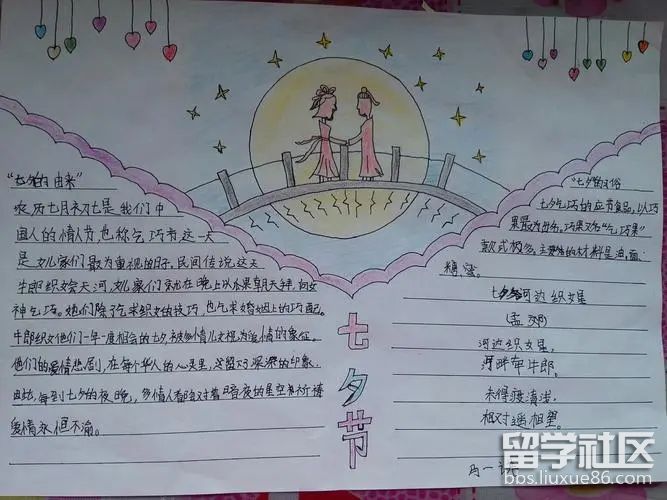 "七夕的由来"
农历七月初七是我们中
国人的情人节也称乞巧节这一天
是女儿家们最为重视的日子,民间传说这天
牛郎织女会天河,女儿家们就在晚上以瓜果朝天拜,向女
神乞巧。她们除了乞求织女的技巧,也乞求婚姻上的巧配。
牛郎织女他们一年一度相会的七夕,被多情儿女视为爱情的象征。
他们的爱情悲剧,在每个华人的心灵里,
深深的印象
由此,每到七夕的夜晚,多情人都会对着暗夜的星空
祈祷
爱情永恒不渝。
七夕节
"七夕"的习俗
七夕乞巧的应节食品,以巧
果最为出名。巧果又名"乞巧果"
款式极多。主要的材料是油,面
糖,蜜。
七夕
河边织女星
(孟郊)
河边织女星,
河畔牵牛郎。
未得渡清浅,
相对遥相望。
留学社区
bbs.liuxue86.com